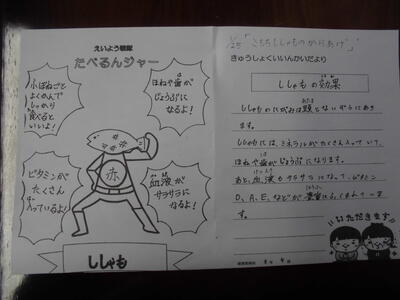 えいよう戦隊
たべるんジャー
小ぼねごと
よくかんで
しっかり
食べると
いいよ！
ほねや歯が
じょうぶに
なるよ！
ビタミンが
たくさん
入っているよ！
血液が
サラサラに
なるよ！
赤
ししゃも
きゅうしょくいいんかいだより
ししゃもの効果
ます。
ししゃもには、ミネラルがたくさん入っていて、
ほねや歯がじょうぶになります。
あと、血液もサラサラになって、ビタミン
D、A、E、などが豊富にふくまれていま
す。
いただきます